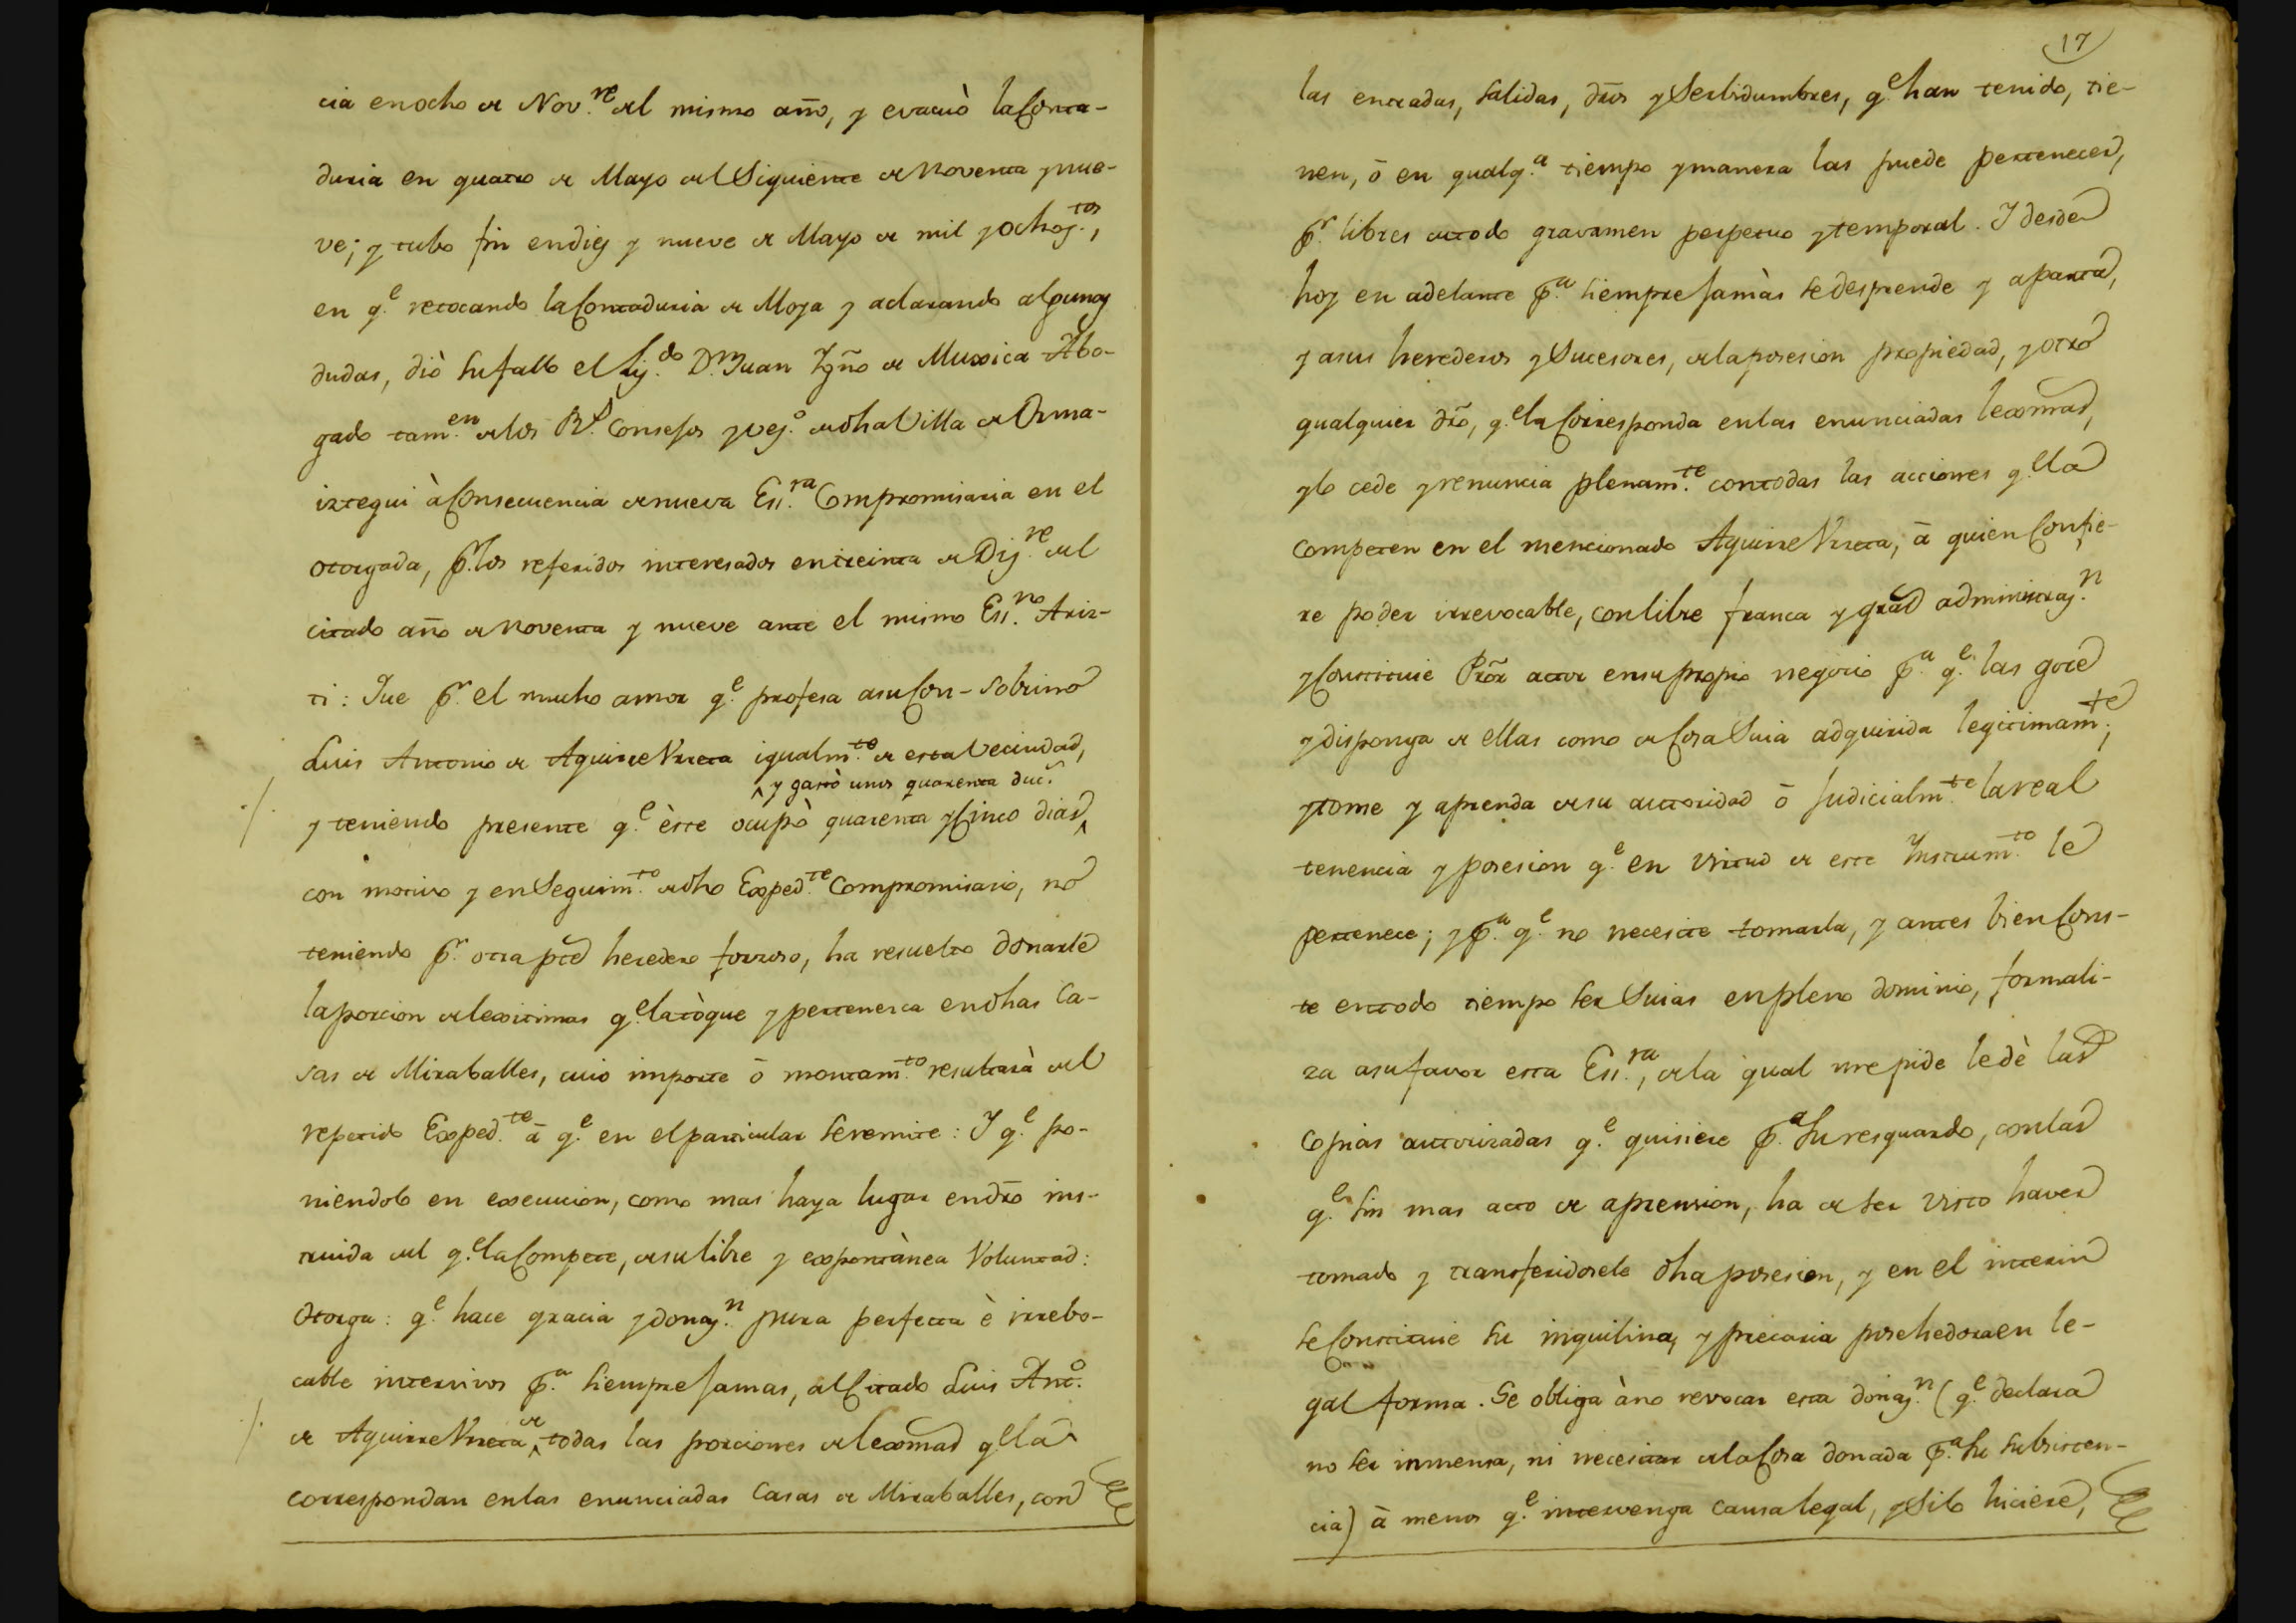 cia en ocho de Nov.re del mismo año, y evacuò la Conta-
duria en quatro de Mayo del Siguiente de noventa y nue-
ve; y tubo fin en diez y nueve de Mayo de mil y ochoz.tos,
en q.e retocando la Contaduria de Moya y aclarando algunas
dudas, diò su fallo el Liz.do D.n Juan Ygño de Muxica Abo-
gado tam.en de los R.s Consejos y vez.o de dha Villa de Orma-
iztegui à Consecuencia de nueva Ess.ra Compromisaria en el
otorgada, p.r los referidos interesados en treinta de Diz.re del
citado año de noventa y nueve ante el mismo Ess.no Ariz-
ti: Que p.r el mucho amor q.e profesa a su Con-sobrino
Luis Antonio de Aguirre Urreta igualm.te de esta Vecindad,
y gastò unos quarenta duc.s
y teniendo presente q.e èste ocupò quarenta y Cinco dias
con motivo y en Seguim.to de dho Exped.te Compromisario, no
teniendo p.r otra pte heredero forzoso, ha resuelto donarle
la porcion de lexitimas q.e la tòque y pertenesca en dhas Ca-
sas de Miraballes, cuio importe ō montam.to resultarà del
repetido Exped.te ā q.e en el particular se remite: Y q.e po-
niendolo en execucion, como mas haya lugar en dro ins-
truida del q.e la Compete, de su libre y expontànea Voluntad:
Otorga: q.e hace gracia y donaz.n pura perfecta è irrebo-
cable intervivos p.a siempre Jamas, al Citado Luis Ant.o
de
de Aguirre Urreta, todas las porciones de lexmas q.e la
correspondan en las enunciadas Casas de Miraballes, con
17
las entradas, salidas, dros y Serbidumbres, q.e han tenido, tie-
nen, ō en qualq.a tiempo y manera las puede pertenecer,
p.r libres de todo gravamen perpetuo y temporal. Y desde
hoy en adelante p.a siempre Jamàs se desprende y aparta,
y a sus herederos y Sucesores, de la posesion propiedad, y otro
qualquier dro, q.e la Corresponda en las enunciadas lexmas,
y lo cede y renuncia plenam.te con todas las acciones q.e la
competen en el mencionado Aguirre Urreta, ā quien Confie-
re poder irrevocable, con libre franca y gral administraz.n
y Constituie Pror actor en su propio negocio p.a q.e las goce
y disponga de ellas como de Cosa Suia adquirida legitimam.te;
y tome y aprenda de su autoridad ō Judicialm.te la real
tenencia y posesion q.e en virtud de este Ynstrum.to le
pertenece; y p.a q.e no necesite tomarla, y antes bien Cons-
te en todo tiempo ser Suias en pleno dominio, formali-
za a su favor esta Ess.ra, de la qual me pide le dè las
Copias autorizadas q.e quisiere p.a su resguardo, con las
q.e sin mas acto de aprension, ha de ser visto haver
tomado y transferidosele dha posesion, y en el interin
se Constituie su inquilina, y precaria posehedora en le-
gal forma. Se obliga à no revocar esta donaz.n (q.e declara
no ser inmensa, ni necesitar de la Cosa donada p.a su subsisten-
cia) ā menos q.e intervenga causa legal, y Si lo hiciere,